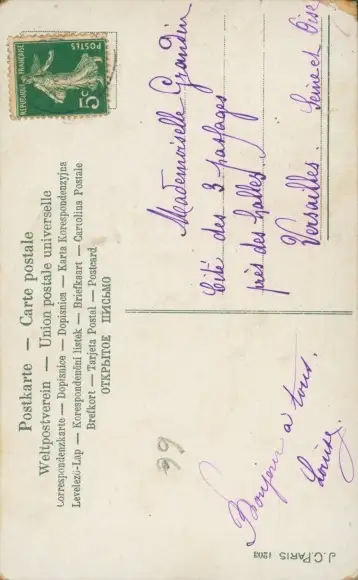 Postkarte — Carte postale
Weltpostverein — Union postale universelle
Correspondenzkarte — Dopisnice — Dopisnica — Karta Korespondenzyjna
Levelező-Lap — Korespondenční lístek — Briefkaart — Cartolina Postale
Brefkort — Tarjeta Postal — Postcard
ОТКРЫТОЕ ПИСЬМО
RÉPUBLIQUE FRANÇAISE
POSTES
5c
Mademoiselle Grandin
Cité des 3 passages
près des halles.
Versailles. Seine et Oise
Bonjour a tous.
Louise.
66
J.C. PARIS 1203